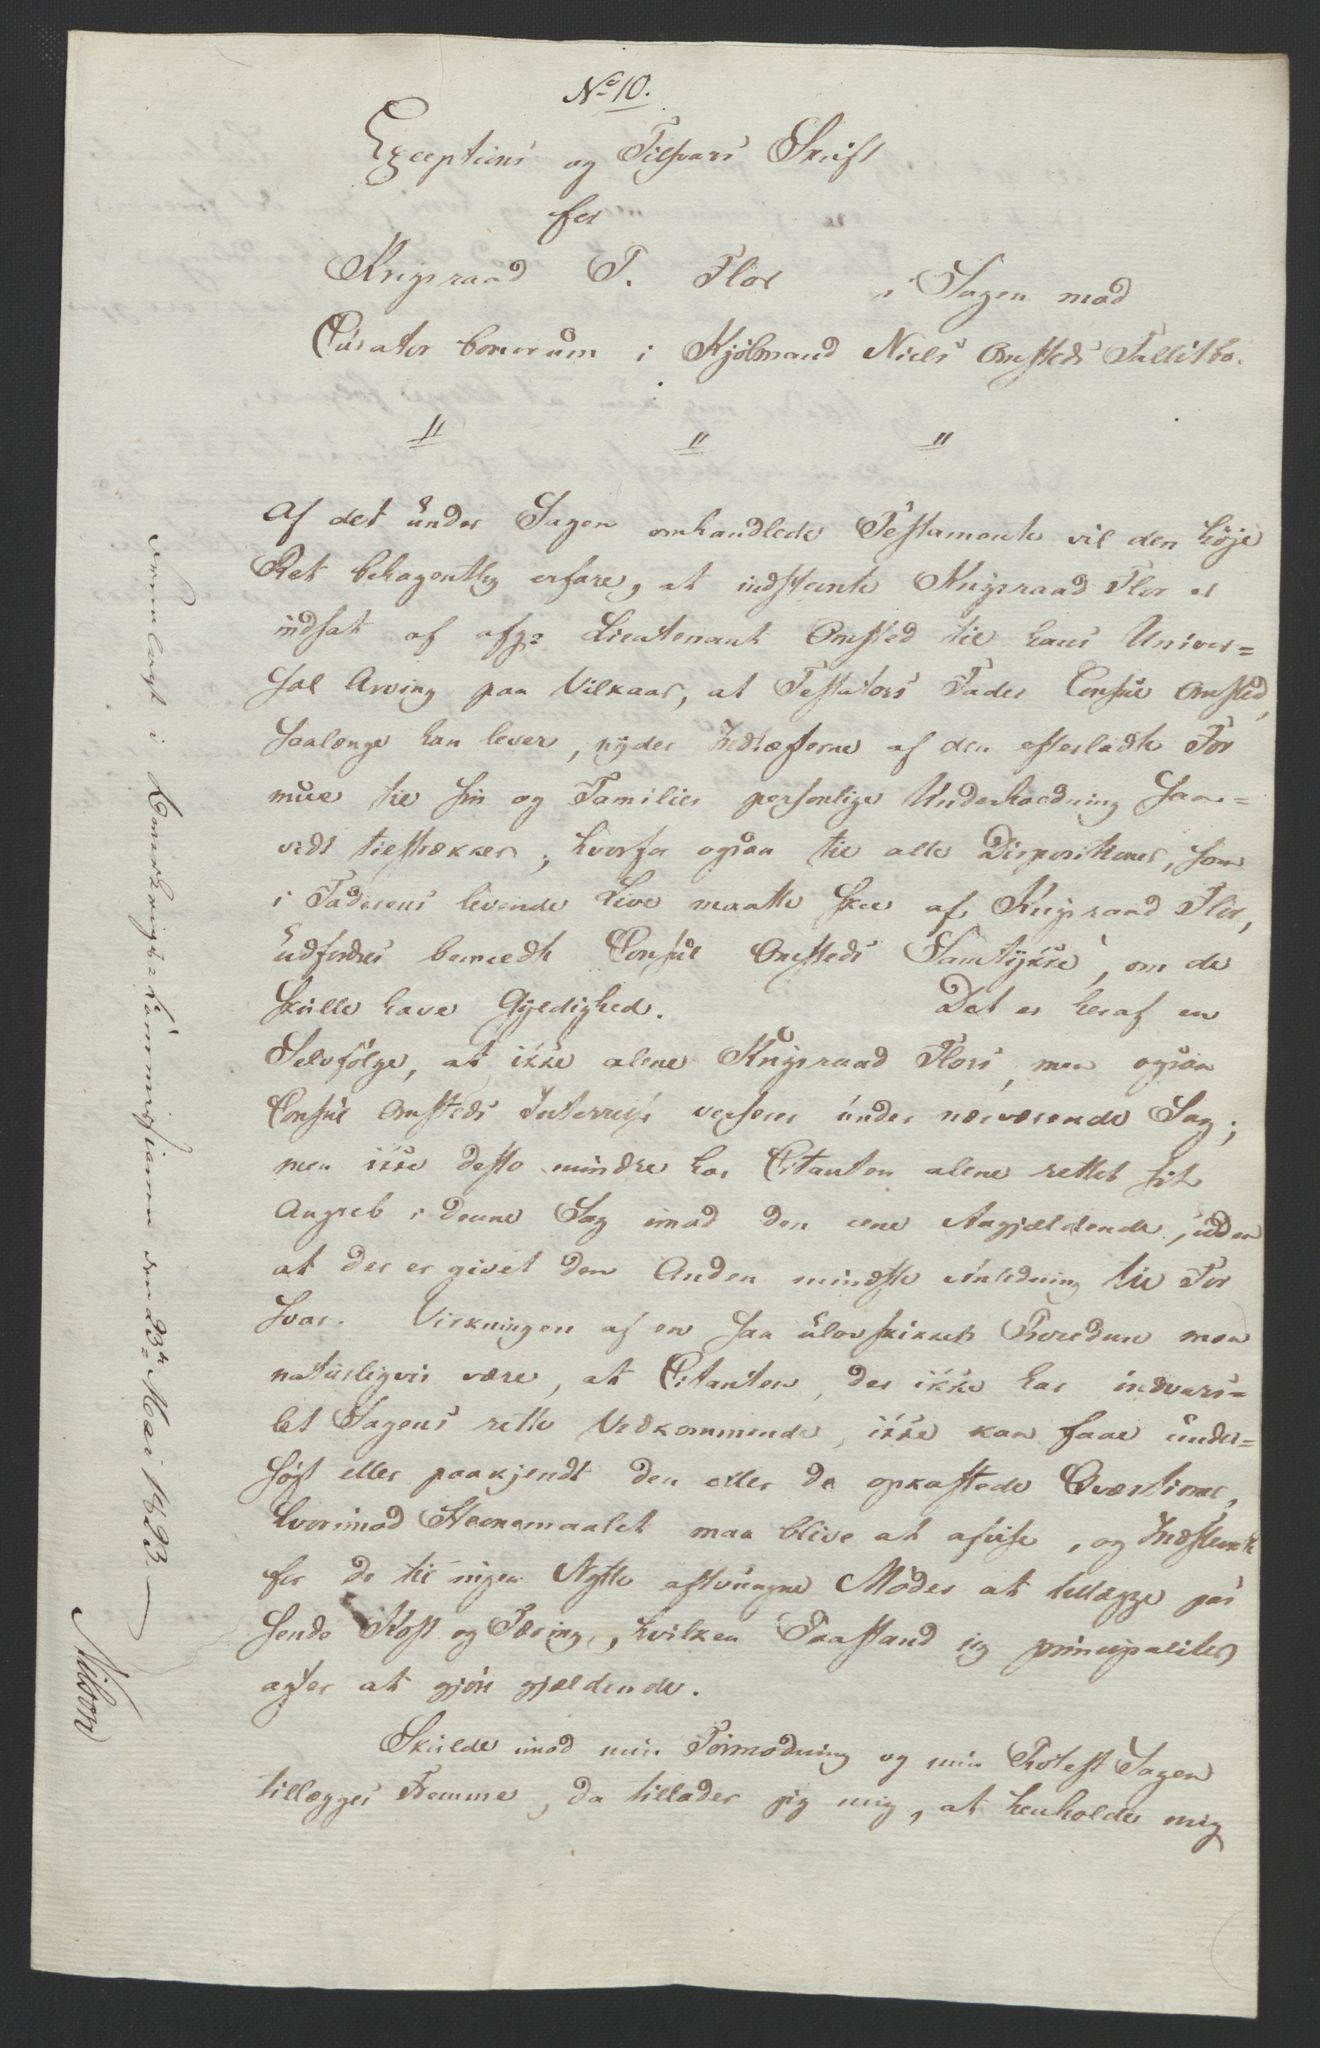 No 10.
Exceptions og Tilsvars Skrift
for
Krigsraad P. Flor i Sagen mod
Curator bonorum i Kjöbmand Niels Omsteds Fallitbo.
Af det under Sagen omhandlede Testamente vil den höje
Ret behagentlig erfare, at indstevnte Krigsraad Flor er
indsat af afg: Lieutenant Omsted til hans Univer=
sal Arving paa Vilkaar, at Testators Fader Consul Omsted,
saalænge han lever, nyder Indtægterne af den efterladte For
mue til sin og Families personlige Underholdning saa=
vidt tilstrækker; hvorfor ogsaa til alle Dispositioner, som
i Faderens levende Live maatte skee af Krigsraad Flor,
udfordres bemeldte Consul Omsteds Samtykke, om de
skulle have Gyldighed. Det er heraf en
Selvfölge, at ikke alene Krigsraad Flors, men ogsaa
Consul Omsteds Interesse verserer under nærværende Sag;
men ikke desto mindre har Citanten alene rettet sit
Angreb i denne Sag imod den ene Angjældende, uden
at der er givet den Anden mindste Anledning til For
svar. Virkningen af en saa ulovskikket Procedure maa
naturligvis være, at Citanten, der ikke har indvars=
let Sagens rette Vedkommende, ikke kan faae under=
søgt eller paakjendt den eller de opkastede Qvæstioner,
hvorimod Stevnemaalet maa blive at afvise, og Indstevnte
for de til ingen Nytte aftvungne Möder at tillægge pas
sende Kost og Tæring, hvilken Paastand jeg principaliter
agter at gjöre gjældende.
Skulde imod min Formodning og min Protest Sagen
tillægges Fremme, da tillader jeg mig, at henholde mig
fremlagt i Forligelses=Commissionen den 23de Mai 1823.
Nilson